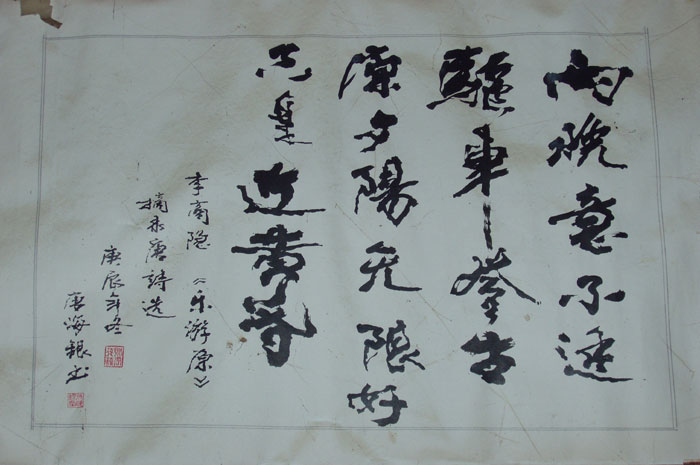 向晚意不適
驅車登古
源夕陽无限好
只是近黄昏
李商隐《乐游原》
摘录唐詩选
庚辰年冬
唐海银书